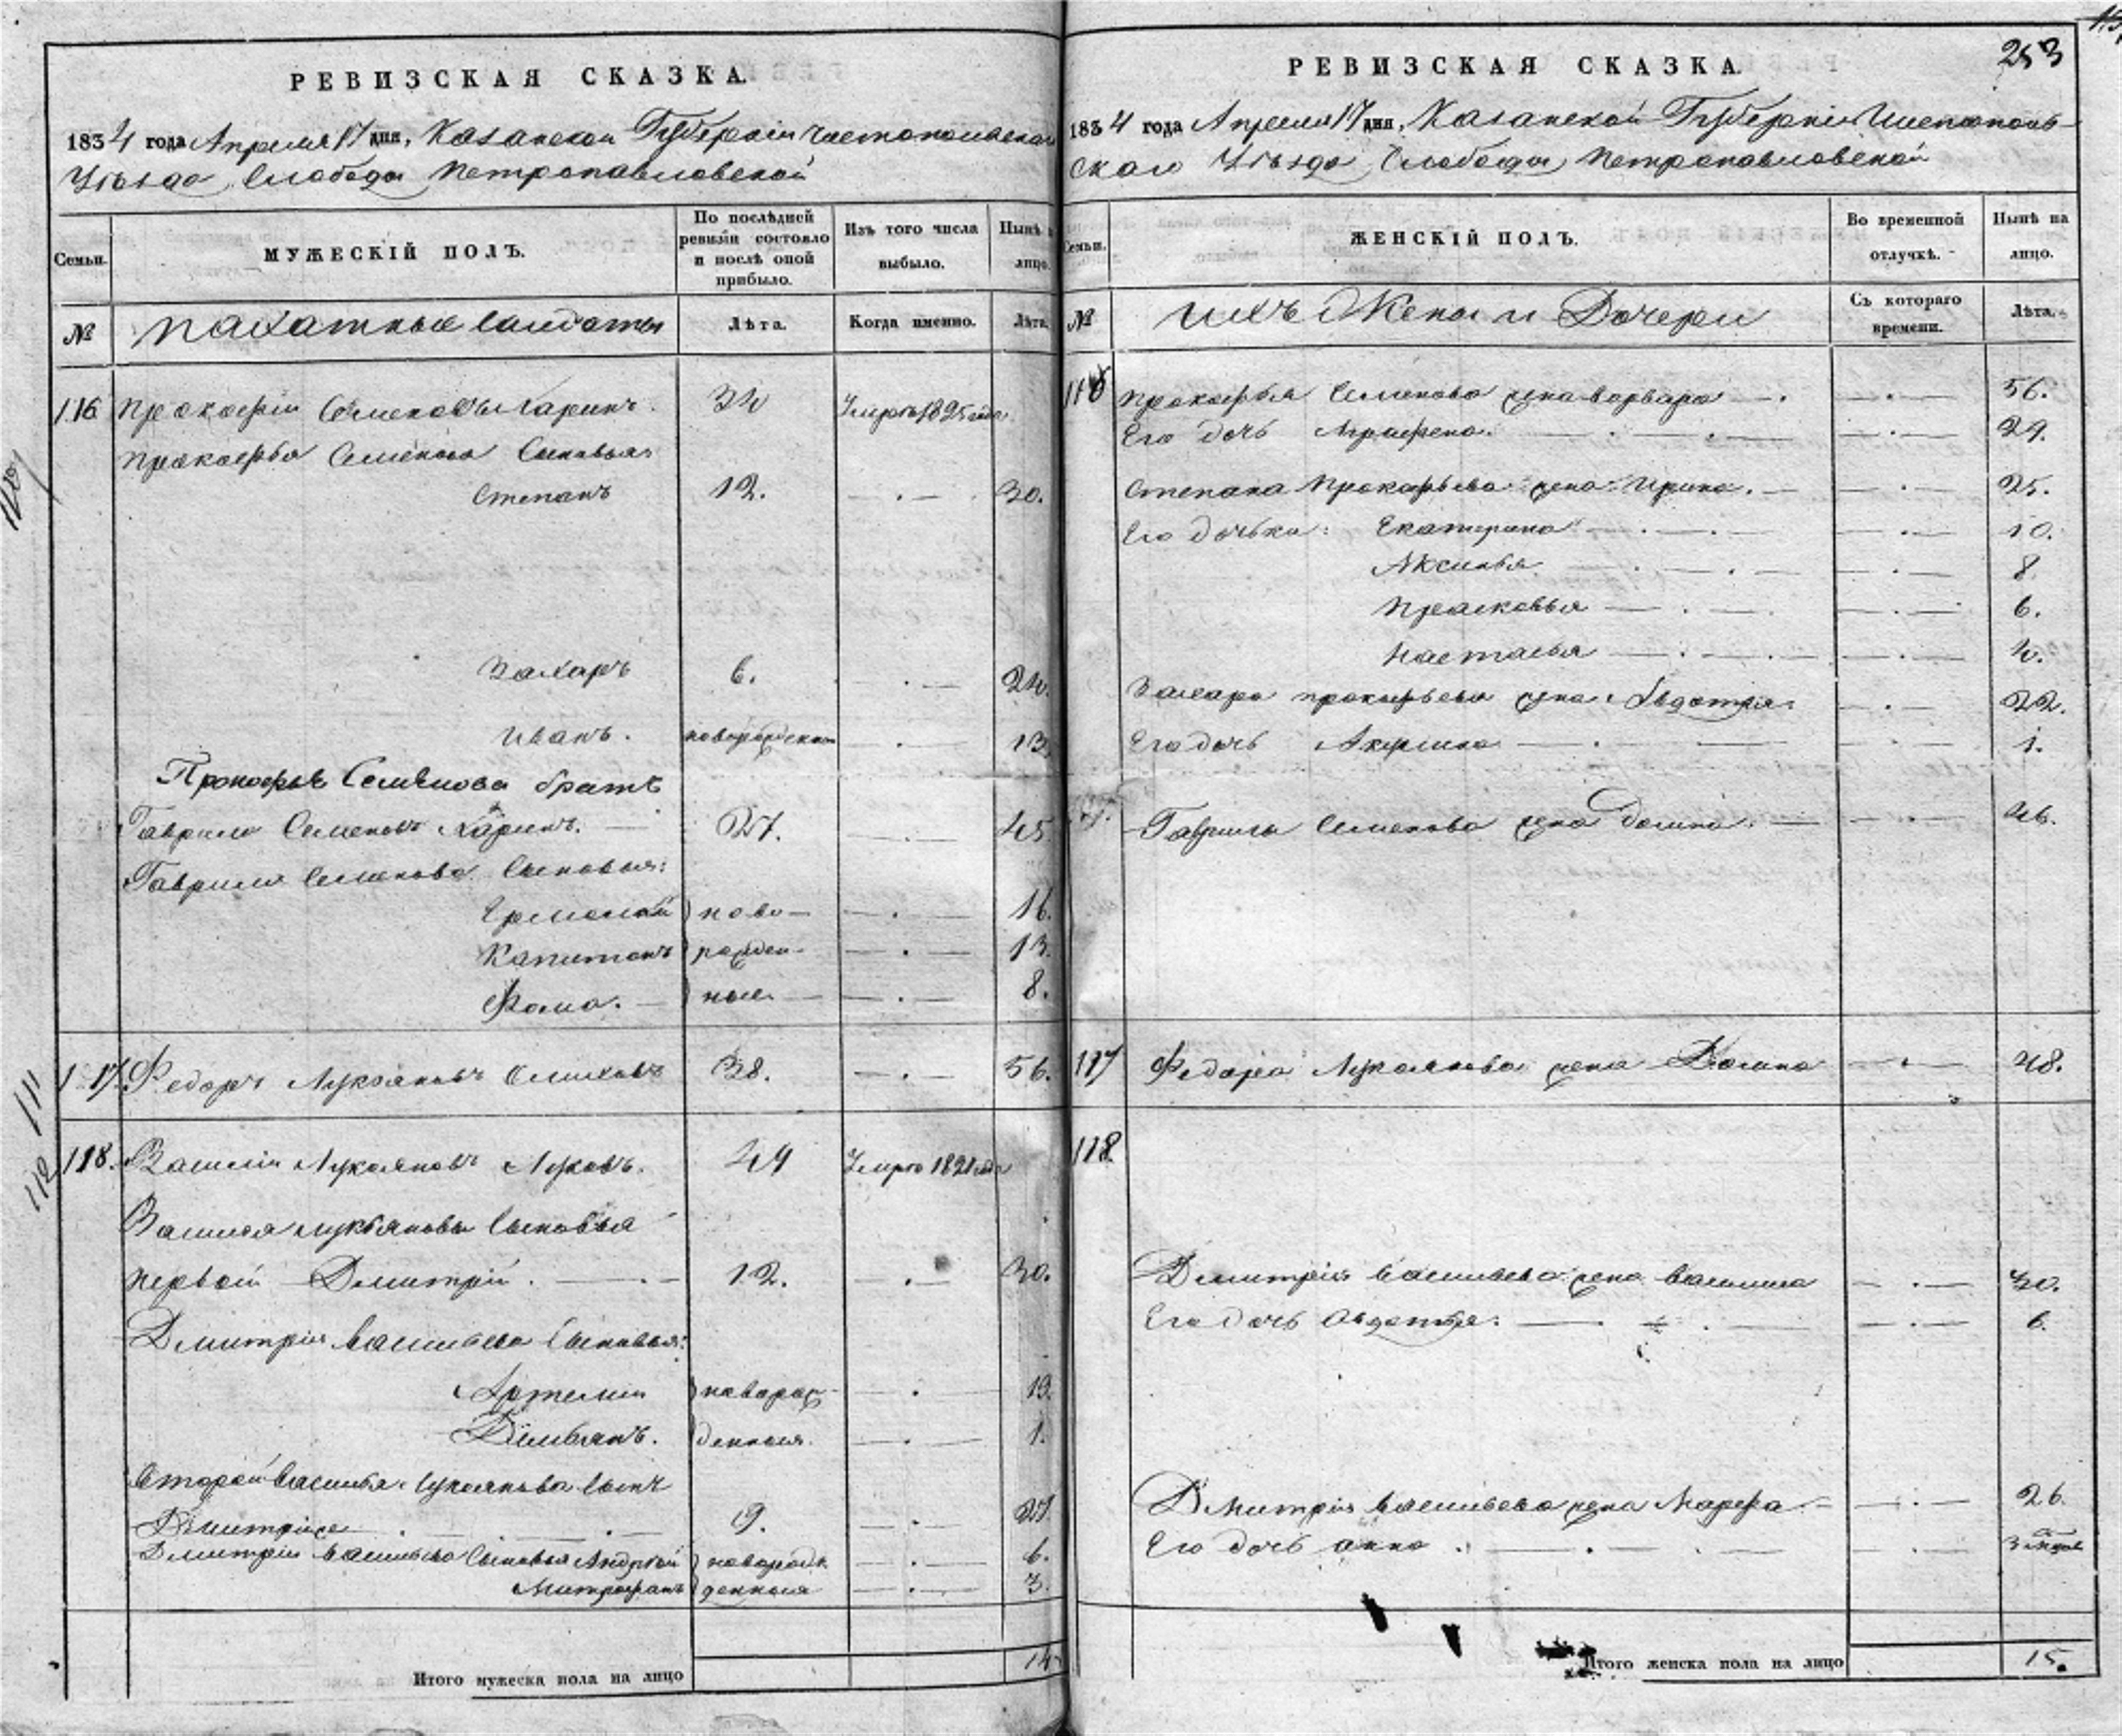 РЕВИЗСКАЯ СКАЗКА.
1834 года Апреля 17 дня, Казанской Губернiи Чистопольскаго
Уѣзда, Слободы Петропавловской
Семьи.
МУЖЕСКІЙ ПОЛЪ.
По послѣдней ревизіи состояло и послѣ оной прибыло.
Изъ того числа выбыло.
Нынѣ на лицо.
№
пахатные солдаты
Лѣта.
Когда именно.
Лѣта.
116 Прокофiй Семеновъ Харинъ. 34 Умеръ 1825 года
Прокофья Семенова Сыновья
Степанъ 12. — . — 30.
Захаръ 6. . — 24.
Иванъ. новорожденной — . — 13
Прокофья Семёнова братъ
Гаврило Семеновъ Харинъ. — 27. . — 45
Гаврилы Семенова Сыновья:
Ермолай ново — . — 16.
Капитонъ рожден- — . — 13.
Фома. — ные — . — 8.
117 Федоръ Лукояновъ 38. — . — 56.
118. Василiй Лукояновъ Луковъ. 49 Умеръ 1821 года
Василья Лукьянова Сыновья
Первой Дмитрiй. — . — 12. . — 30.
Дмитрiя Васильева Сыновья:
Артемiй новорож- — . — 13.
Демьянъ. денныя. — . — 1.
Второй Василья Лукоянова Сынъ
Дмитрiй же — . — 9. — . — 27.
Дмитрiя Васильева Сыновья Андрей новорож — . — 6.
Митрофанъ денныя — . — 3.
Итого мужеска пола на лицо 14
110
111
112
253
РЕВИЗСКАЯ СКАЗКА.
1834 года Апреля 17 дня, Казанской Губернiи Чистополь-
скаго Уѣзда, Слободы Петропавловской
Семьи.
ЖЕНСКІЙ ПОЛЪ.
Во временной отлучкѣ.
Нынѣ на лицо.
№
Ихъ Жены и Дочери
Съ котораго времени.
Лѣта.
116 Прокофья Семенова жена варвара — . — . — 56.
Его дочь Аграфена. — . — . — 29.
Степана Прокофьева жена Ирина. — — . — 25.
Его дочьки: Екатерина — . — . — 10.
Аксинья — . — . — 8.
Прасковья — . — . — 6.
Настасья — . — . — 4.
Захара прокофьева жена Авдотья. — . — 22.
Его дочь Акулина — . — . — 1.
Гаврилы Семенова жена Домна. — — . — 46.
117 Федора Лукоянова жена Домна — . — 48.
118.
Дмитрiя Васильева жена Василиса — . — 30.
Его дочь Авдотья. — . — . — 6.
Дмитрiя Васильева жена Марфа. — — . — 26.
Его дочь анна . — . — . — 3 месяца
Итого женска пола на лицо 15.